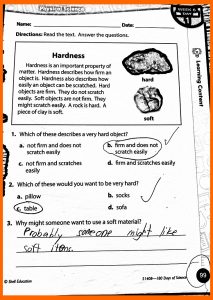 Physical Science
WEEK 6
DAY
Name:
Date:
Directions: Read the text. Answer the questions.
Learning Content
Hardness
Hardness is an important property of
matter. Hardness describes how firm an
object is. Hardness also describes how
easily an object can be scratched. Hard
objects are firm. They do not scratch
easily. Soft objects are not firm. They
might scratch easily. A rock is hard. A
piece of clay is soft.
hard
soft
1. Which of these describes a very hard object?
a. not firm and does not
scratch easily
b. firm and does not
scratch easily
c. not firm and scratches
easily
d. firm and scratches easily
2. Which of these would you want to be very hard?
a. pillow
b. socks
c. table
d. sofa
3. Why might someone want to use a soft material?
Probably someone might like
soft items.
© Shell Education
51409—180 Days of Science
99